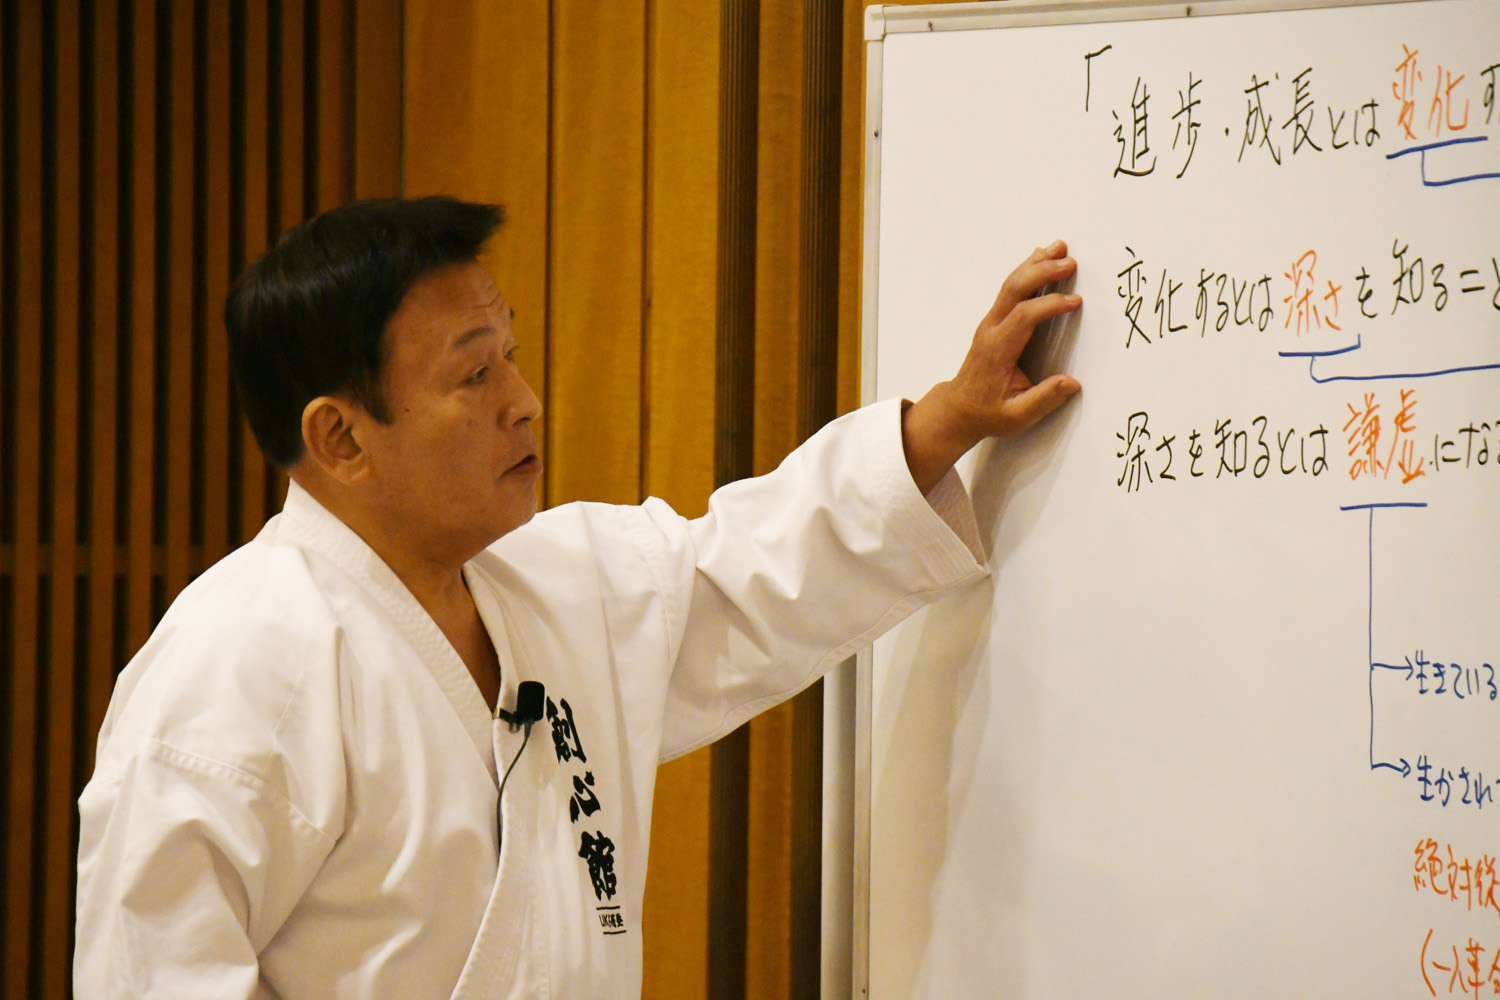 「進歩・成長とは変化す
変化するとは深さを知ること
深さを知るとは謙虚になる
生きている
生かされて
絶対従
(一人革命
創心館
UK塾